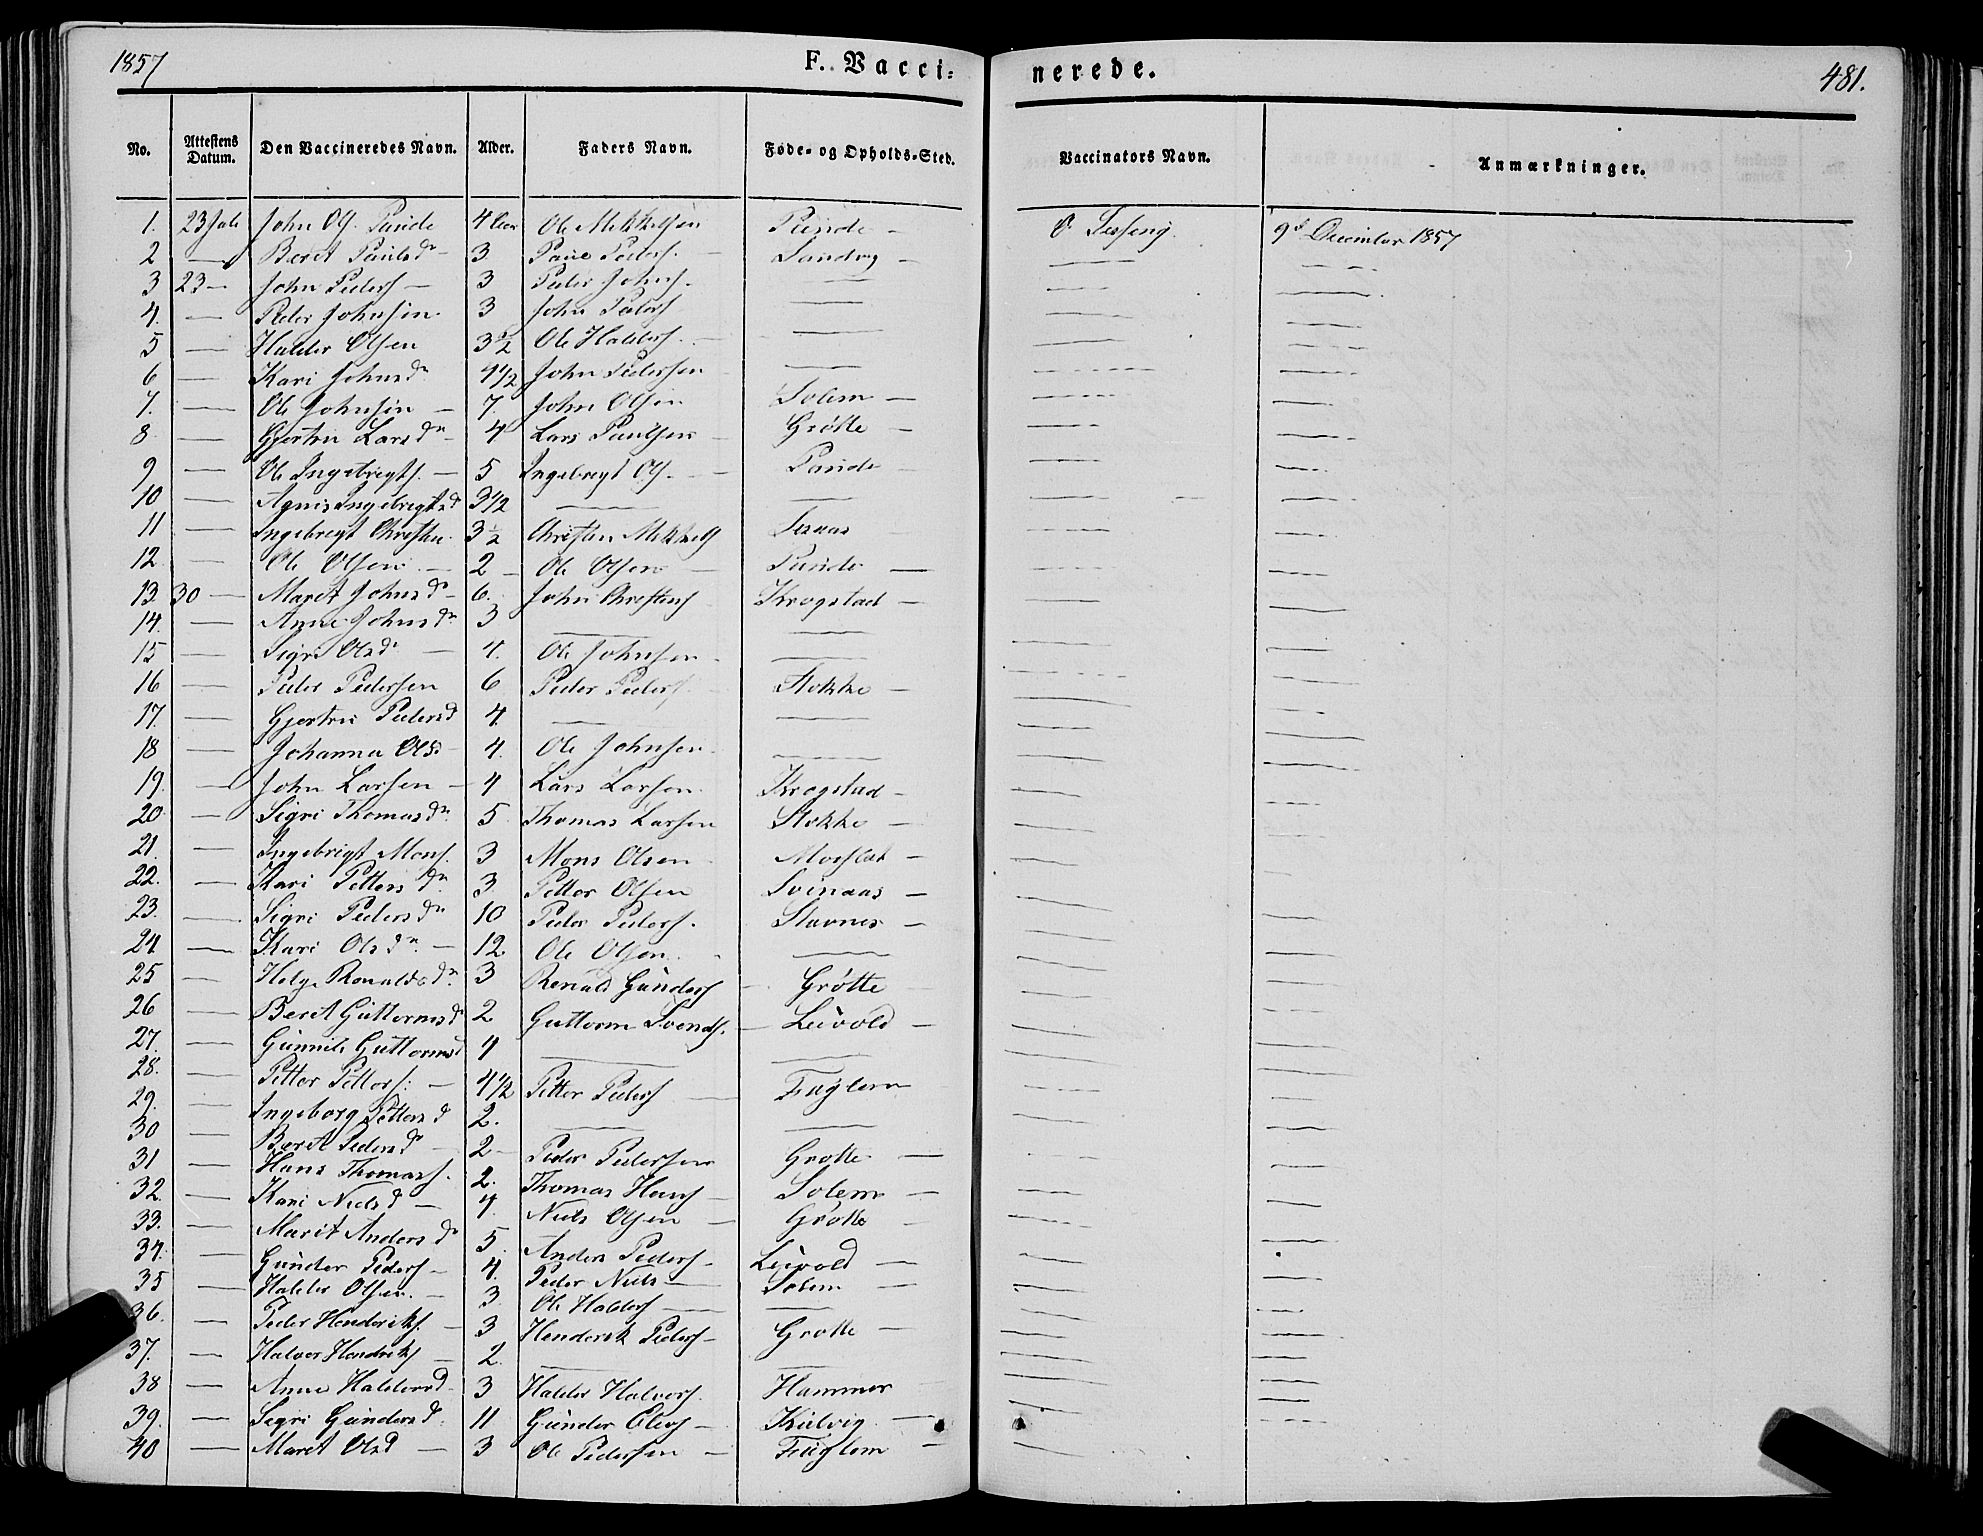 1857 F. Vacci- nerede. 481.
No. Attestens Datum. Den Vaccineredes Navn. Alder. Faders Navn. Føde- og Opholds-Sted. Vaccinators Navn. Anmærkninger.
1. 23 Juli John Ols. 4 Ole Mikkelsen 9d December 1857
2 — Beret Paulsdr 3 Peders. —
3 23 — John Peders — 3 Peder Johns. —
4. — Peder Johnsen 3 John Peders —
5 — Halder Olsen 3½ Ole Halders. —
6 — Kari Johnsdr 4½ John Pedersen —
7. — Ole Johnsen — 7. John Olsen Solem —
8. — Gjertru Larsdr — 4 Lars Paulsen Grøtte —
9 — Ole Ingebrigts. — 5 Ingebrigt Ols. —
10 — Agnis Ingebrigtsd 3½ — —
11 — Ingebrigt Christen. 3½ Christen Mikkels
12. — Ole Olsen — 2 — Ole Olsen — —
13 30 — Maret Johnsdr — 6. John Christens Krogstad —
14. — Anne Johnsdr 3 — —
15 — Sigri Olsdr — 4. Ole Johnsen —
16 — Peder Pedersen 6 Peder Peders. Stokke —
17. — Gjertru Pedersd 4. — —
18 — Johanna Olsd 4. Ole Johnsen —
19. — John Larsen — 4 Lars Larsen Krogstad —
20 — Sigri Thomasdr 5 Thomas Larsen Stokke —
21. — Ingebrigt Mons. 3 Mons Olsen —
22. — Kari Pettersdr 3 Petter Olsen Svinaas —
23. — Sigri Pedersdr 10 Peder Peders. Stavnes —
24 — Kari Olsdr — 12 Ole Olsen —
25 — Helge Ronaldsdr 3 Gunders Grøtte
26 — Beret Guttormsd 2 Guttorm Svends. — Leivold —
27. — Gunnil Guttormsd 4 — —
28. — Petter Petters. — 4½ Petter Peders — Fuglem
29. — Ingeborg Pettersd 2. — —
30 — Beret Pedersdr 2 — Peder Pedersen Grøtte —
31 — Hans Thomass. 2. Thomas Hans — Solem —
32. — Kari Nielsd — 4. Niels Olsen — Grøtte —
33. — Marit Andersdr 5. Anders Peders — Leivold —
34. — Gunder Peders — 4. Peder Niels — Solem —
35 — Halder Olsen — 3. Ole Halders — —
36. — Peder Hendriks. — 3 Henderik Peders — Grøtte —
37. — Halvor Hendriks — 2. — —
38 — Anne Haldorsd 3 Halder Halvors. Hammer
39. — Sigri Gundersd. 11 Gunder Olers — Kulvig —
40 — Maret Olsd — 3 Ole Pedersen — Fuglem —